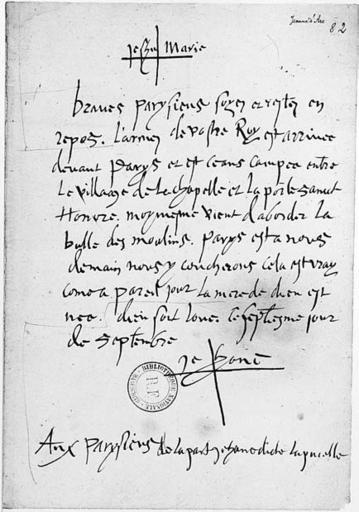 Jeanne d'Arc
82
Jesus Marie
braves parysiens soyez et restez en
repos. l'armee de vostre Roy est arrivee
devant Parys et est ceans campee entre
Le village de Lechapelle et La porte Sainct
Honore. moy meme vient d'aborder La
butte des moulins. Parys est a nous
demain nous y coucherons cela est vray
come a pareil jour La mere de dieu est
nee. dieu soit loue. Ce septiesme jour
de Septembre
BIBLIOTHEQUE NATIONALE
R.F.
Aux Parysiens de la part Jehane dicte lapucelle